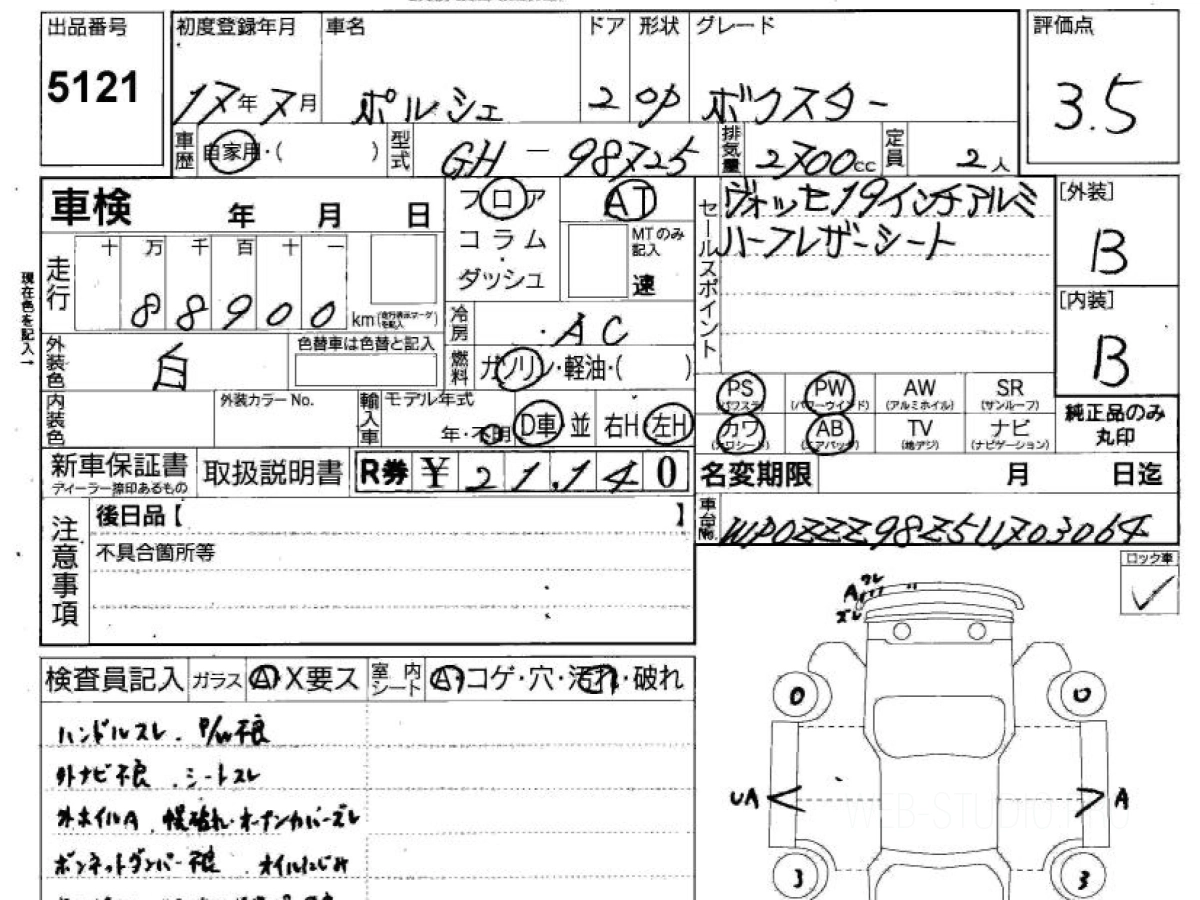 出品番号
5121
初度登録年月 車名 ドア 形状 グレード
17年7月 ポルシェ 2 OP ボクスター
評価点
3.5
車歴 自家用・( ) 型式 GH-98725 排気量 2700cc 定員 2人
車検 年 月 日
現在色を記入→
走行 十 万 千 百 十 一
88900 km
フロア
コラム
・
ダッシュ
AT
MTのみ記入
速
セールスポイント
ヴォッセ19インチアルミ
ハーフレザーシート
[外装]
B
[内装]
B
冷房 AC
燃料 ガソリン・軽油・( )
外装色 白
色替車は色替と記入
内装色
外装カラーNo.
輸入車 モデル年式
年・不明
D車 並 右H 左H
PS PW AW SR
(パワステ) (パワーウインド) (アルミホイル) (サンルーフ)
カワ AB TV ナビ
(カワシート) (エアバッグ) (地デジ) (ナビゲーション)
純正品のみ
丸印
新車保証書
ディーラー捺印あるもの
取扱説明書
R券 ¥ 21,140
名変期限 月 日迄
車台No. WP0ZZZ98Z5U703064
注意事項
後日品【 】
不具合箇所等
ロック車
検査員記入 ガラス A X要ス 室内シート A・コゲ・穴・汚れ・破れ
ハンドルスレ . P/W不良
外ナビ不良 . シートスレ
外ホイルA . 幌破れ・オープンカバーズレ
ボンネットダンパー不良 . オイルにじみ
ワレ
A
ズレ
0 0
UA A
3 3
WEB-STUDIO